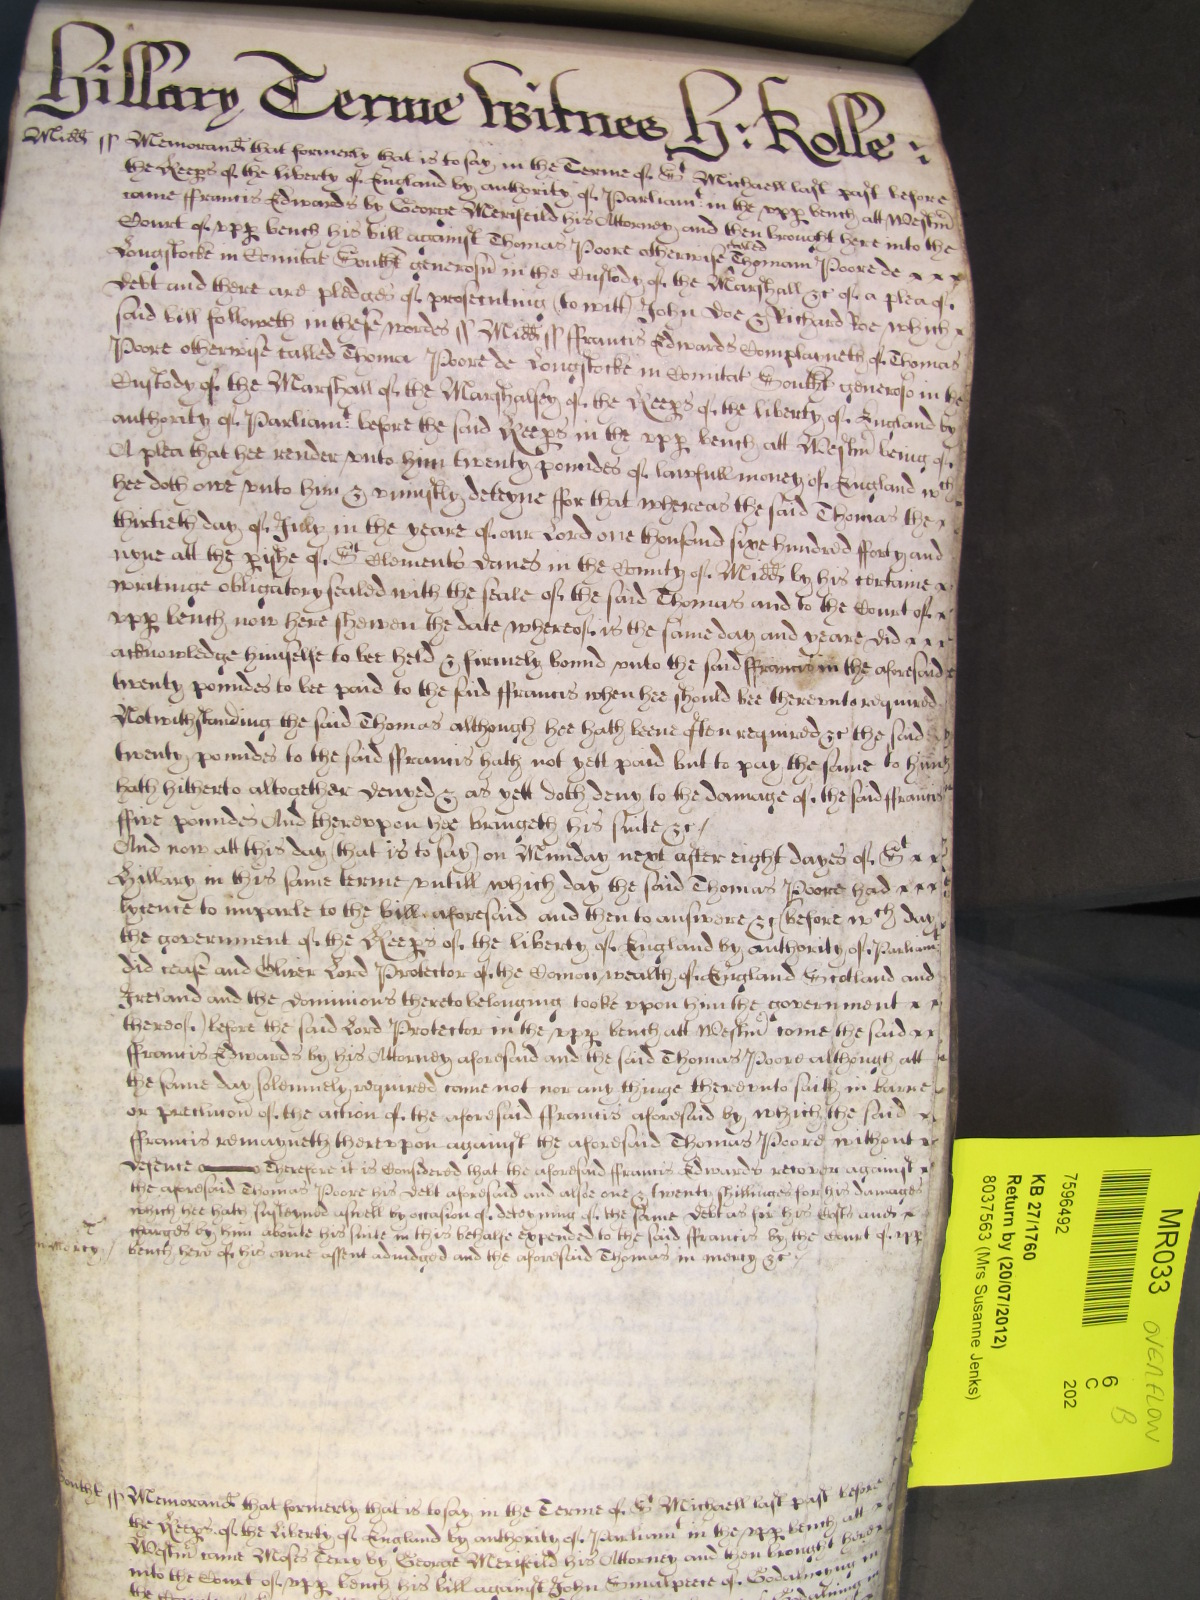 Hillary Terme Witnes H: Rolle :
Midd ss Memorand that formerly that is to say in the Terme of St Michaell last past before
the Keeps of the liberty of England by authority of Parliamt in the upp bench att Westm
came ffrancis Edwards by George Merifeild his Attorney and then brought here into the
Court of upp bench his bill against Thomas Poore otherwise called Thomam Poore de x x x
Longstocke in Comitat Southt generosu in the Custody of the Marshall &c of a plea of
debt and there are pledges of prosecuting (to witt) John Doe & Richard Roe which x
said bill followeth in these wordes ss Midd ss ffrancis Edwards Complayneth of Thomas
Poore otherwise called Thoma Poore de Longstocke in Comitat Southt generoso in the
Custody of the Marshall of the Marshalsey of the Keeps of the liberty of England by
authority of Parliamt before the said Keeps in the upp bench att Westm being of
A plea that hee render unto him twenty poundes of lawfull money of England wch
hee doth owe unto him & uniustly deteyne ffor that whereas the said Thomas the x
thirtieth day of July in the yeare of our Lord one thousand sixe hundred fforty and
nyne att the pishe of St Clements Danes in the County of Midd by his certaine x
writinge obligatory sealed with the seale of the said Thomas and to the Court of x
upp bench now here shewen the date whereof is the same day and yeare did x x x
acknowledge himselfe to bee held & firmely bound unto the said ffrancis in the aforesaid
twenty poundes to bee paid to the said ffrancis when hee should bee thereunto required
Notwithstanding the said Thomas although hee hath beene often required &c the said
twenty poundes to the said ffrancis hath not yett paid but to pay the same to him
hath hitherto altogether denyed & as yett doth deny to the damage of the said ffrancis
ffive poundes And thereupon hee bringeth his suite &c /
And now att this day (that is to say) on Munday next after eight dayes of St x x
Hillary in this same terme untill which day the said Thomas Poore had x x x
lycence to imparle to the bill aforesaid and then to answere &c (before wch day
the government of the Keeps of the liberty of England by authority of Parliamt
did cease and Oliver Lord Protector of the Comon wealth of England Scotland and
Ireland and the dominions thereto belonging tooke upon him the government x x
thereof) before the said Lord Protector in the upp bench att Westm come the said x x
ffrancis Edwards by his Attorney aforesaid and the said Thomas Poore although att
the same day solemnely required came not nor any thinge thereunto saith in barre
or preclusion of the action of the aforesaid ffrancis aforesaid by which the said x
ffrancis remayneth thereupon against the aforesaid Thomas Poore without x
defence Therefore it is Considered that the aforesaid ffrancis Edwards recover against x
the aforesaid Thomas Poore his debt aforesaid and alsoe one & twenty shillinges for his damages
which hee hath susteyned aswell by occasion of deteyning of the same debt as for his Costs and x
charges by him aboute his suite in this behalfe expended to the said ffrancis by the Court of upp
mercy / bench here of his owne assent adiudged and the aforesaid Thomas in mercy &c /
Southt ss Memorand that formerly that is to say in the Terme of St Michaell last past before
the Keeps of the liberty of England by authority of Parliamt in the upp bench att
Westm came Moses Terry by George Merifeild his Attorney and then brought here
into the Court of upp bench his bill against John Smalpeece of Godalming in
MR033 OVERFLOW
6 B
C
202
7596492
KB 27/1760
Return by (20/07/2012)
8037563 (Mrs Susanne Jenks)